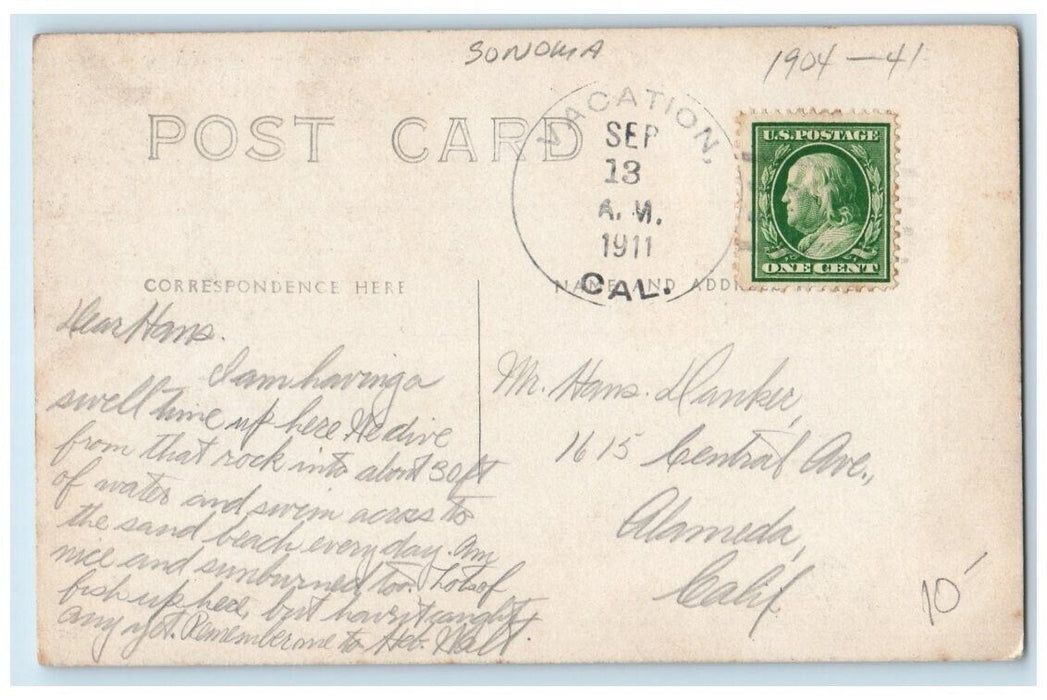 SONOMA
1904 — 41
POST CARD
VACATION,
SEP
13
A. M.
1911
CAL.
U.S. POSTAGE
ONE CENT
CORRESPONDENCE HERE
NAME AND ADDRESS
Dear Hans.
I am having a
swell time up here. We dive
from that rock into about 30 ft
of water and swim across to
the sand beach every day. Am
nice and sunburned, too. Lots of
fish up here, but havn't caught
any yet. Remember me to Walt.
Mr. Hans. Danker,
1615 Central Ave.,
Alameda,
Calif
10